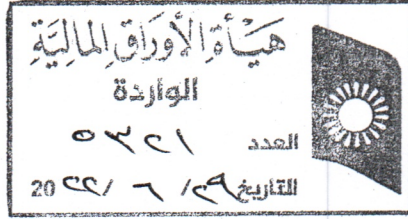 هَيْأَةُ الأَوْرَاقِ المَالِيَّةِ
الواردة
العدد ٥٣٢١
التاريخ ٢٩/ ٦ /٢٢ 20